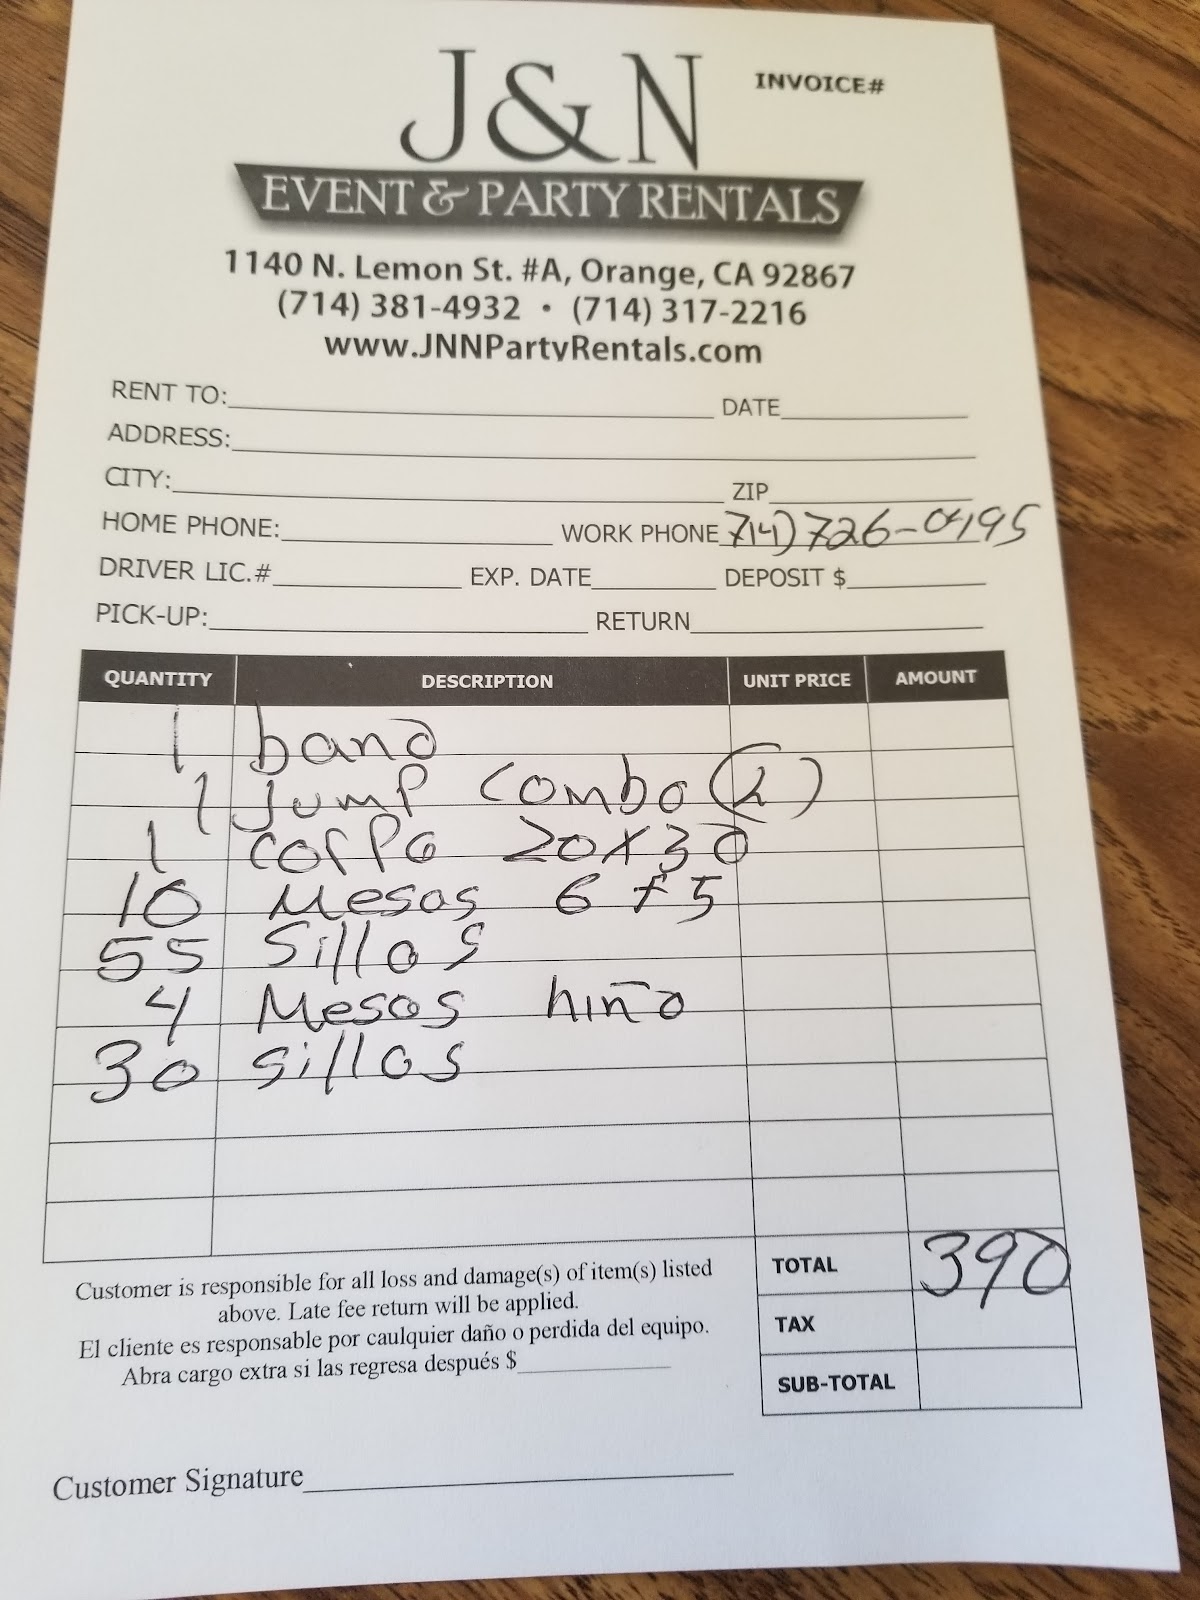 J&N
INVOICE#
EVENT & PARTY RENTALS
1140 N. Lemon St. #A, Orange, CA 92867
(714) 381-4932 • (714) 317-2216
www.JNNPartyRentals.com
RENT TO: DATE
ADDRESS:
CITY: ZIP
HOME PHONE: WORK PHONE 714) 726-0495
DRIVER LIC.# EXP. DATE DEPOSIT $
PICK-UP: RETURN
QUANTITY DESCRIPTION UNIT PRICE AMOUNT
1 band
1 Jump combo (2)
1 carpa 20x30
10 Mesas 6 f5
55 Sillas
4 Mesas niño
30 sillas
TOTAL 390
TAX
SUB-TOTAL
Customer is responsible for all loss and damage(s) of item(s) listed
above. Late fee return will be applied.
El cliente es responsable por caulquier daño o perdida del equipo.
Abra cargo extra si las regresa después $
Customer Signature